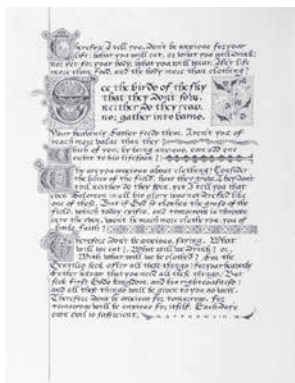 Therefore I tell you, don't be anxious for your
life: what you will eat, or what you will drink;
nor yet for your body, what you will wear. Isn't life
more than food, and the body more than clothing?
See the birds of the sky
that they don't sow,
neither do they reap,
nor gather into barns.
Your heavenly Father feeds them. Aren't you of
much more value than they
Which of you, by being anxious, can add one
cubit to his lifespan?
Why are you anxious about clothing? Consider
the lilies of the field, how they grow. They don't
toil, neither do they spin, yet I tell you that
even Solomon in all his glory was not dressed like
one of these. But if God so clothes the grass of the
field, which today exists, and tomorrow is thrown
into the oven, won't he much more clothe you, you of
little faith?
Therefore don't be anxious, saying, What
will we eat?, What will we drink? or,
With what will we be clothed? For the
Gentiles seek after all these things; for your heavenly
Father knows that you need all these things. But
seek first God's kingdom, and his righteousness;
and all these things will be given to you as well.
Therefore don't be anxious for tomorrow, for
tomorrow will be anxious for itself. Each day's
own evil is sufficient. MATTHEW